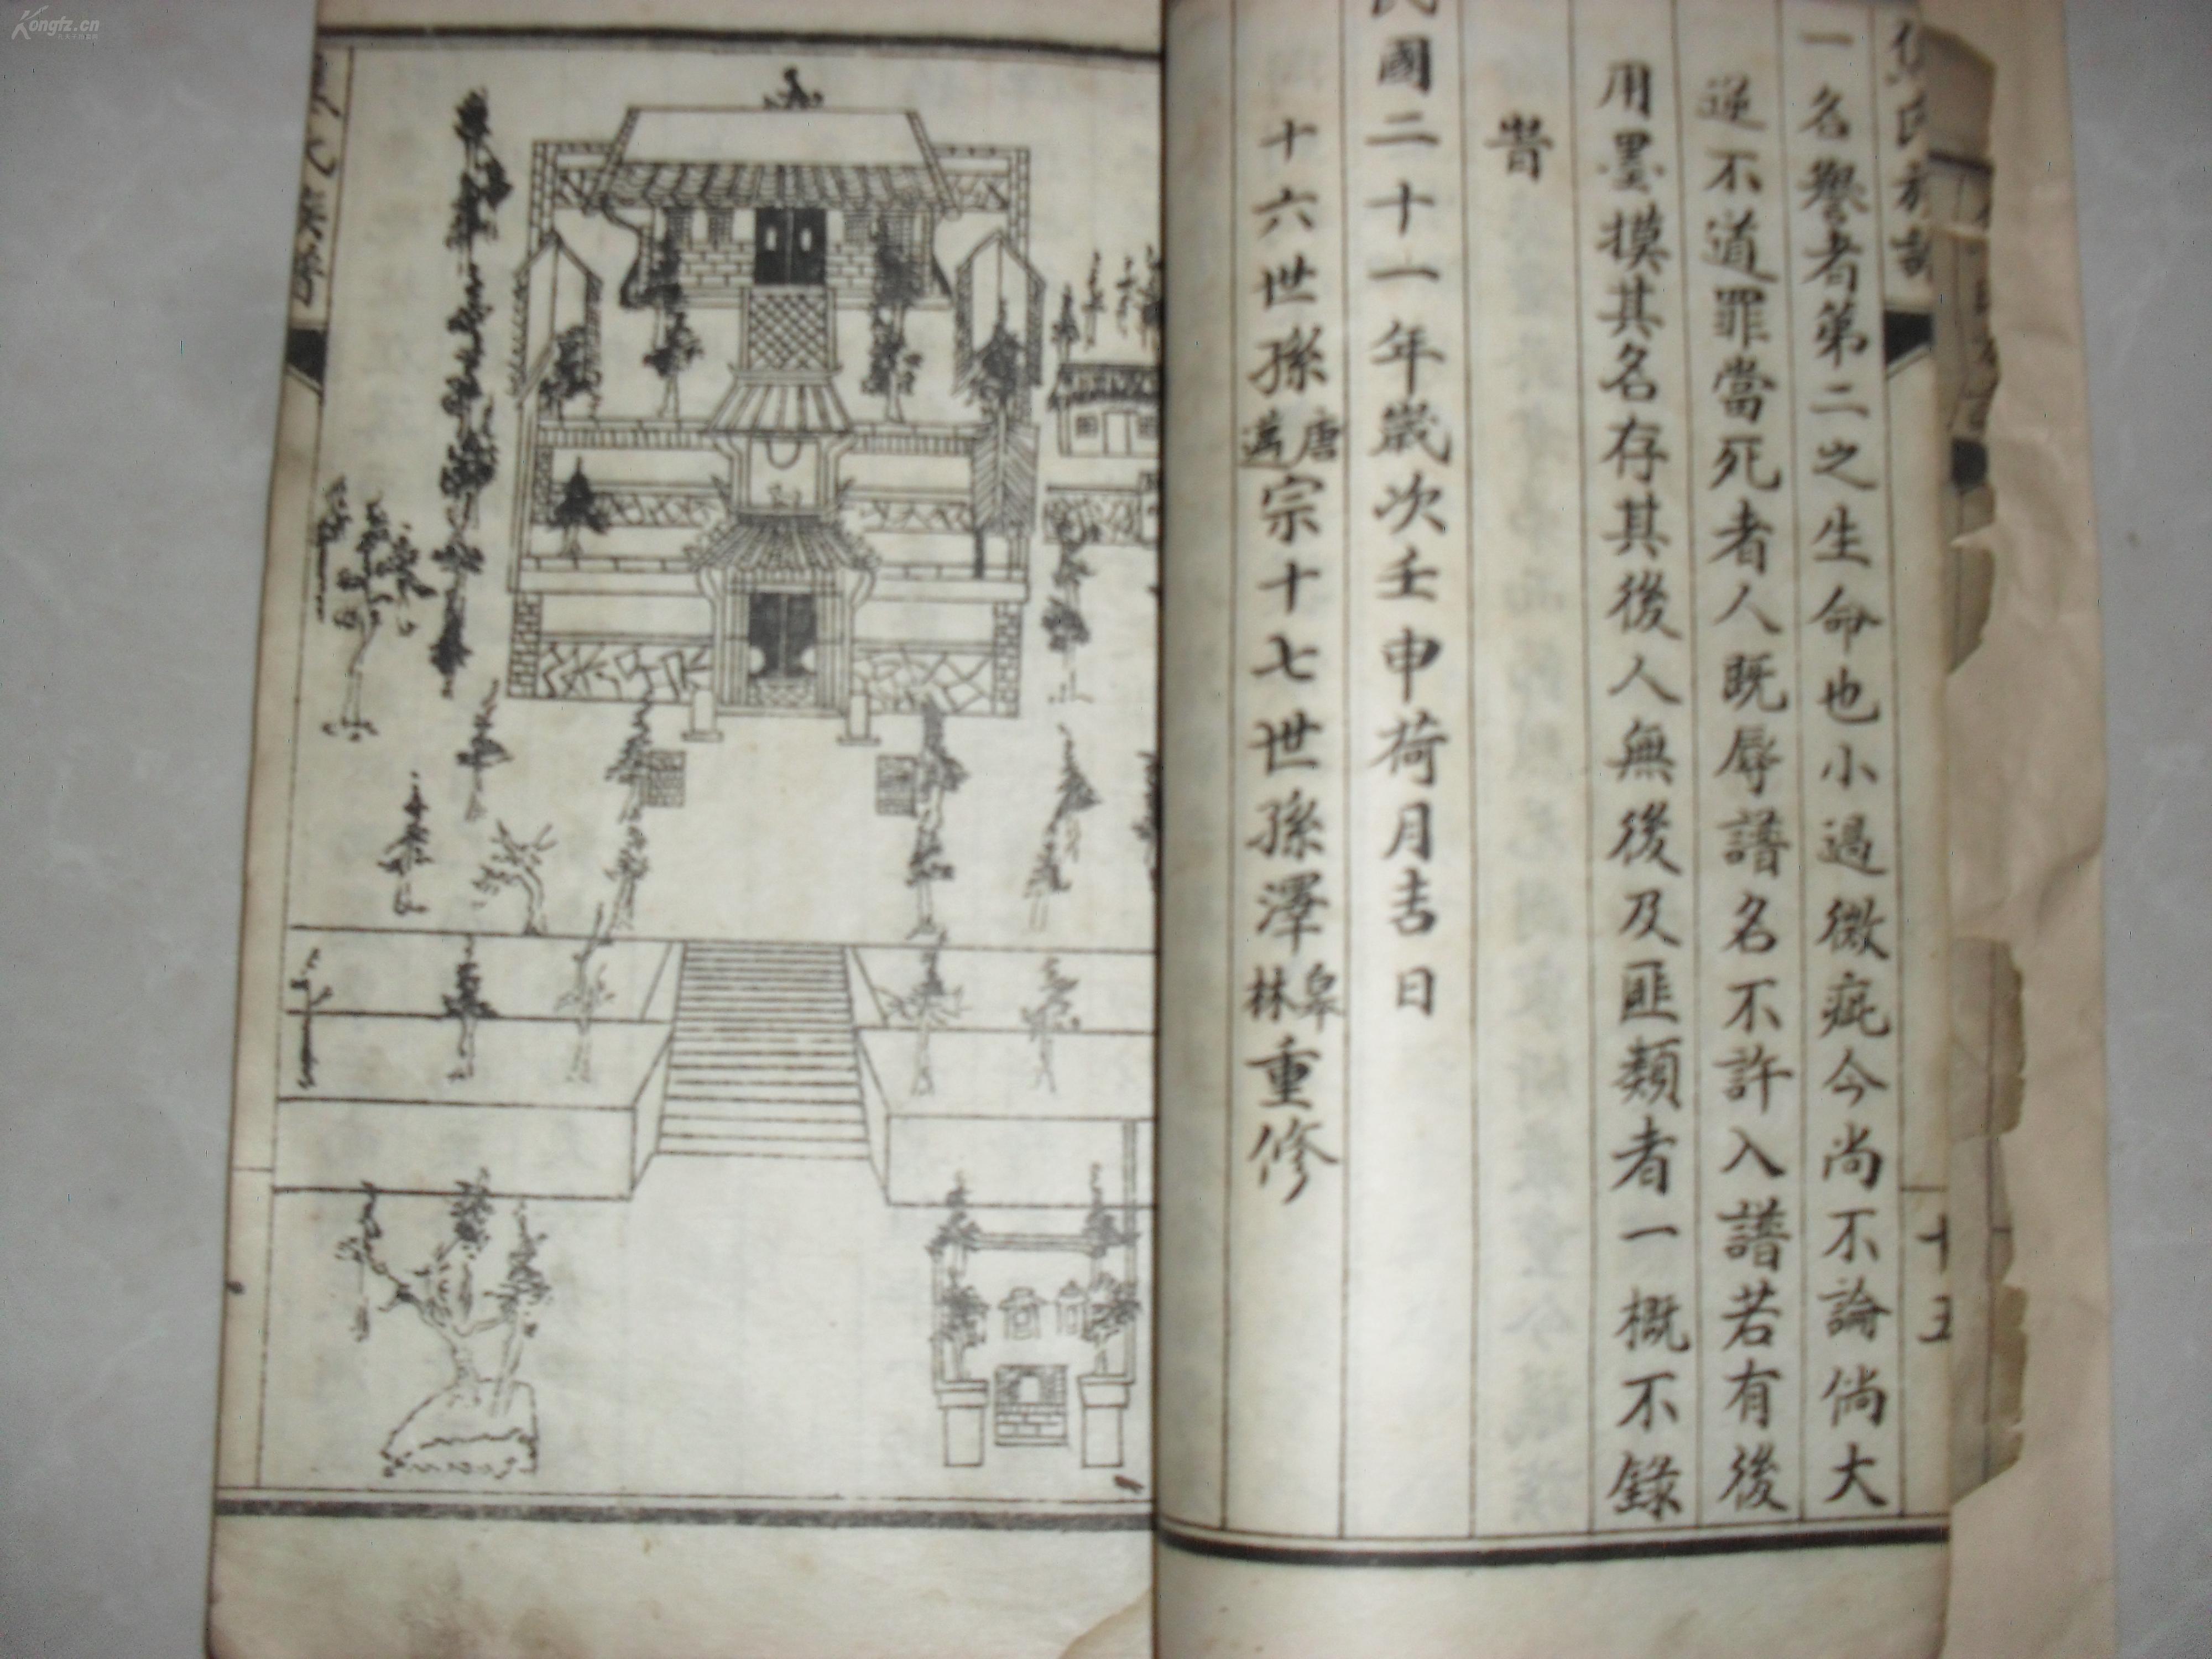 一名譽者第二之生命也小過微疵今尚不論倘大
逆不道罪當死者人既辱譜名不許入譜若有後
用墨摸其名存其後人無後及匪類者一概不錄
旹
民國二十一年歲次壬申荷月吉日
十六世孫唐宗十七世孫澤皋林重修
十五
Kongfz.cn